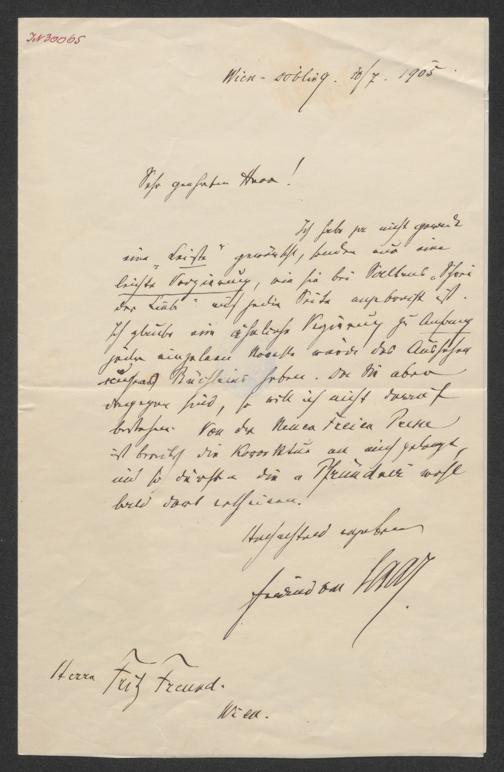 JN 30065
Wien-Döbling. 10/7. 1905.
Sehr geehrter Herr!
Ich habe ja nicht gerade
eine „Leiste“ gewünscht, sondern nur eine
leichte Verzierung, wie sie bei
der Liebe“ auf jeder Seite angebracht ist.
Ich glaube eine ähnliche Verzierung zu Anfang
jeder einzelnen Novelle würde das Aussehen
unseres Büchleins heben. Da Sie aber
dagegen sind, so will ich nicht darauf
bestehen. Von der Neuen Freien Presse
ist bereits die Korrektur an mich gelangt,
und so dürften die „Pfründner“ wohl
bald dort erscheinen.
Hochachtend ergeben
Ferdinand von Saar
Herrn Fritz Freund.
Wien.